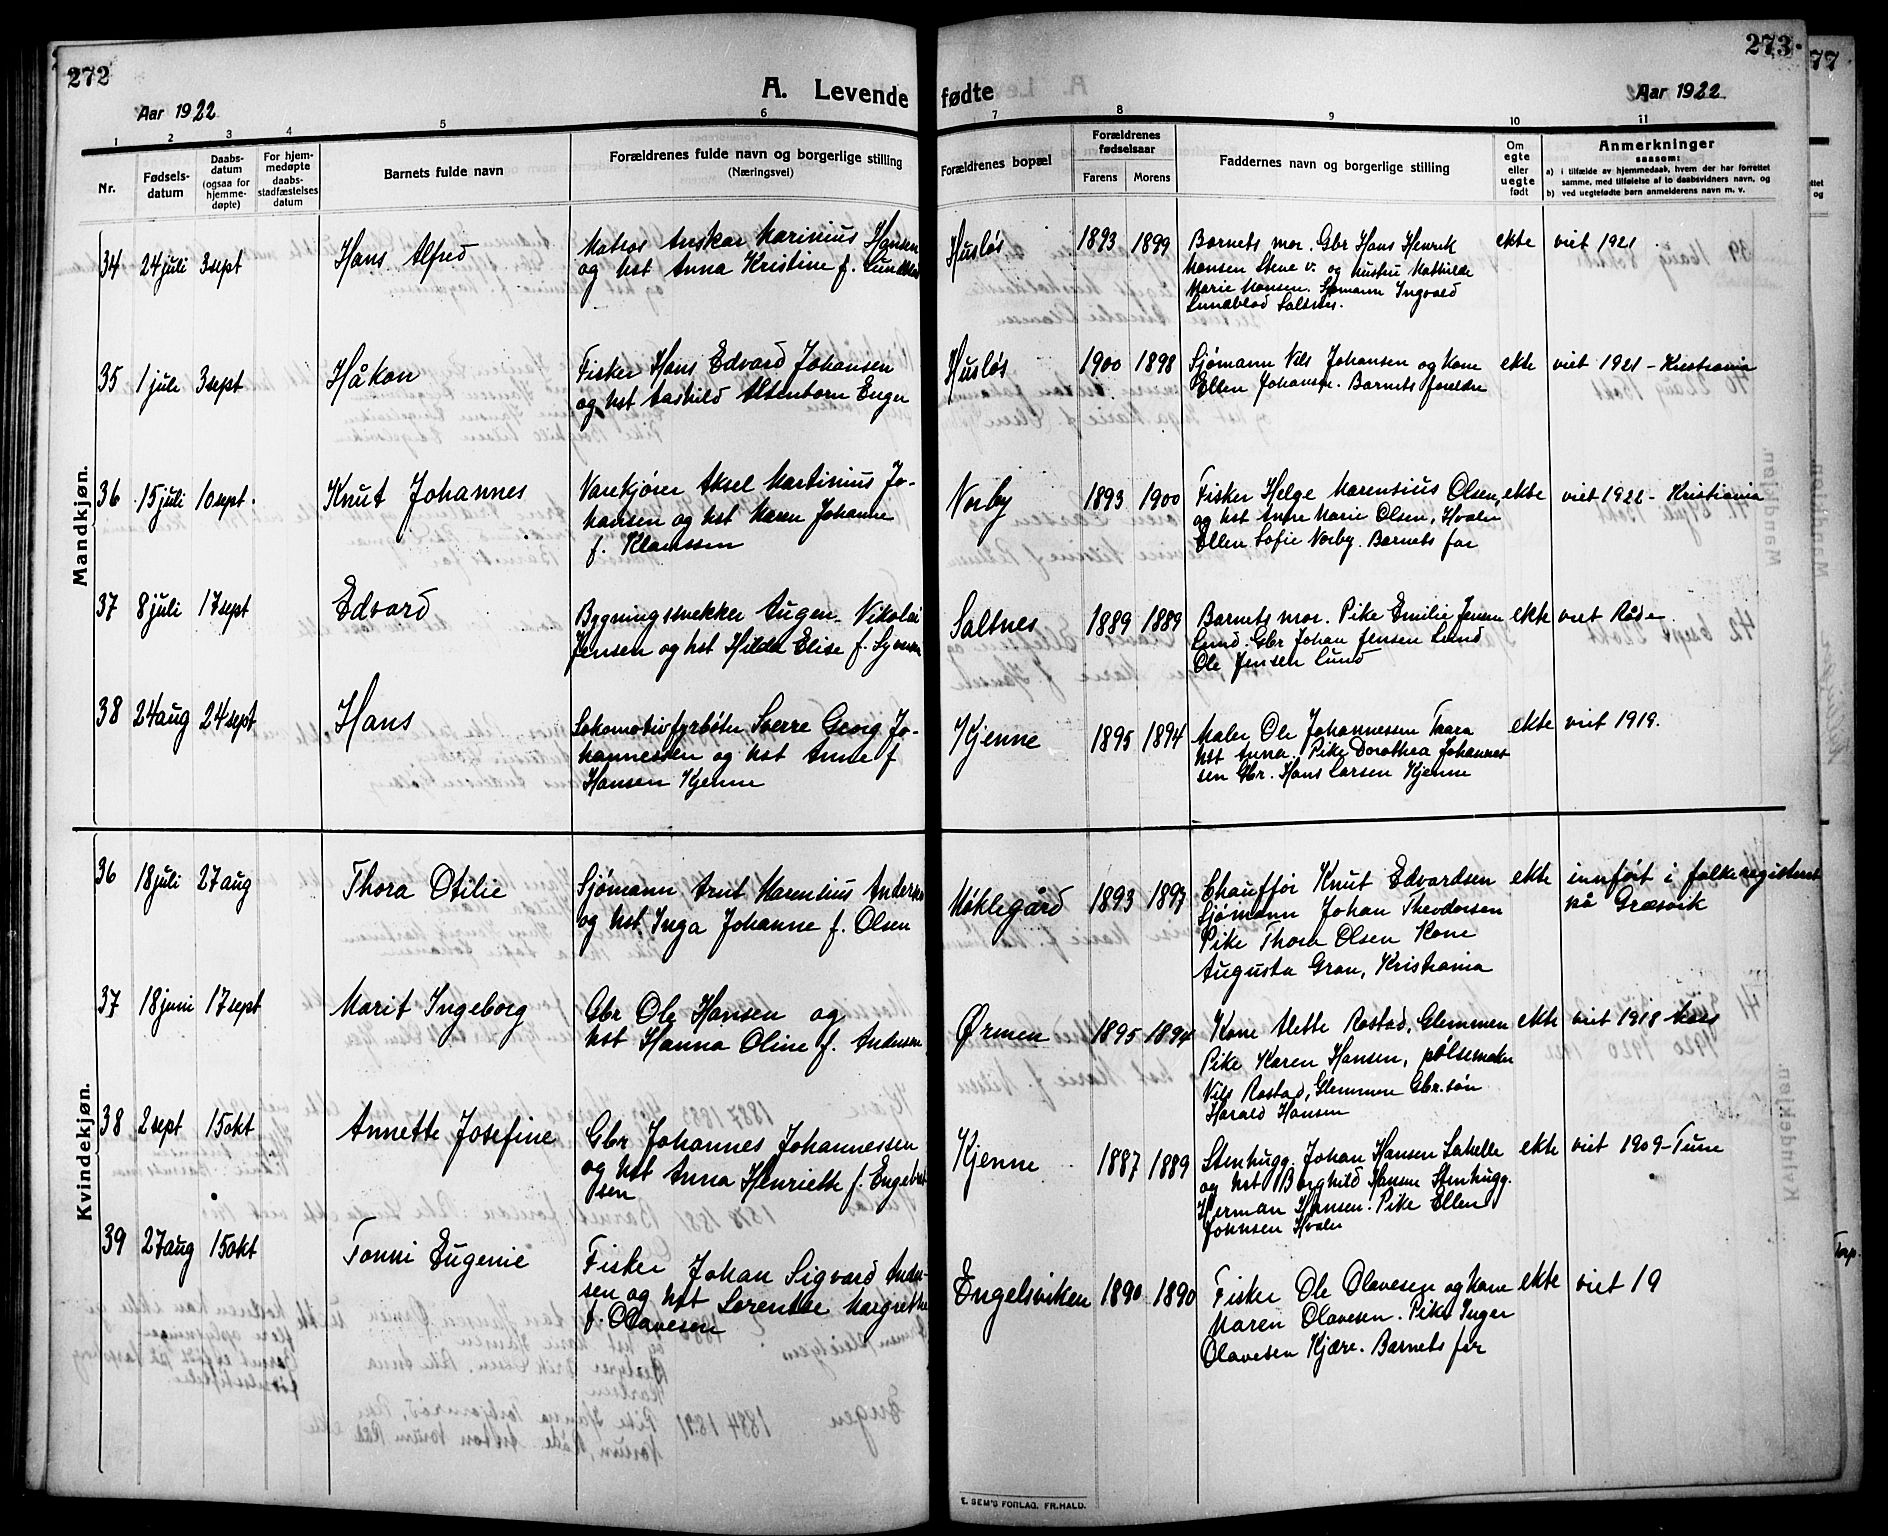 272
273
77
A. Levende fødte
Aar 1922
Aar 1922
1 2 3 4 5 6 7 8 9 10 11
Nr.
Fødsels-
datum
Daabs-
datum
(ogsaa for
hjemme-
døpte)
For hjem-
medøpte
daabs-
stadfæstelses
datum
Barnets fulde navn
Forældrenes fulde navn og borgerlige stilling
(Næringsvei)
Forældrenes bopæl
Forældrenes
fødselsaar
Farens Morens
Faddernes navn og borgerlige stilling
Om
egte
eller
uegte
født
Anmerkninger
saasom:
a) i tilfælde av hjemmedaab, hvem der har forrettet
samme, med tilføielse af to daabsvidners navn, og
b) ved uegtefødte barn anmelderens navn m. v.
Mandkjøn.
34 24 juli 3 sept Hans Alfred
Matros Anskar Marinius Hansen
og hst Anna Kristine f. Lundblad
Husløs 1893 1899
Barnets mor. Gbr Hans Henrik
Hansen Stene v. og hustru Mathilde
Marie Hansen. Sjømann Ingvald
Lundblad Saltnes.
ekte viet 1921
35 1 juli 3 sept Håkon
Fisker Hans Edvard Johansen
og hst Aashild Altenborn Enger
Husløs 1900 1898
Sjømann Nils Johansen og Kone
Ellen Johansen. Barnets foreldre
ekte viet 1921 - Kristiania
36 15 juli 10 sept. Knut Johannes
Varekjører Aksel Martinius Jo-
hansen og hst Maren Johanne
f. Klaussen
Norby 1893 1900
Fisker Helge Marensius Olsen
og hst Anne Marie Olsen, Hvaler
Ellen Sofie Norby. Barnets far
ekte viet 1922 - Kristiania
37 8 juli 17 sept Edvard
Bygningssnekker Augen Nikolai
Jensen og hst Hilda Elise f. Syversen
Saltnes 1889 1889
Barnets mor. Pike Emilie Jensen
Lund. Gbr Johan Jensen Lund
Ole Jensen Lund
ekte viet Råde
38 24 aug 24 sept Hans
Lokomotivfyrbøter Sverre Georg Jo-
hannessen og hst Anne f
Hansen Kjenne
Kjenne 1895 1894
Maler Ole Johannessen Thara
hst Anna. Pike Dorothea Johannes
sen Gbr. Hans Larsen Kjenne
ekte viet 1919.
Kvindekjøn.
36 18 juli 27 aug Thora Otilie
Sjømann Arnt Marenlius Andersen
og hst Inga Johanne f. Olsen
Møklegård 1893 1897
Chauffør Knut Edvardsen
Sjømann Johan Theodorsen
Pike Thora Olsen Kone
Augusta Gran, Kristiania
ekte innført i folkeregisteret
på Græsvik
37 18 juni 17 sept Marit Ingeborg
Gbr Ole Hansen og
hst Hanna Oline f. Andersen
Ørmen 1895 1894
Kone Alette Rostad, Glemmen
Pike Karen Hansen, pølsemaker
Nils Rostad, Glemmen Gbr.søn
Harald Hansen
ekte viet 1918
38 2 sept 15 okt Annette Josefine
Gbr Johannes Johannessen
og hst Anna Henriette f. Engebret
sen
Kjenne 1887 1889
Stenhugg. Johan Hansen Lahelle
og hst Borghild Hansen Stenhugg.
Herman Hansen. Pike Ellen
Johnsen Hvaler
ekte viet 1909 - Tune
39 27 aug 15 okt Tonni Eugenie
Fisker Johan Sigvard Ander-
sen og hst Lorentse Margrethe
f. Olavesen
Engelsviken 1890 1890
Fisker Ole Olavesen og Kone
Maren Olavesen. Pike Inger
Olavesen Kjære. Barnets far
ekte viet 19
E. SEM'S FORLAG, FR.HALD.